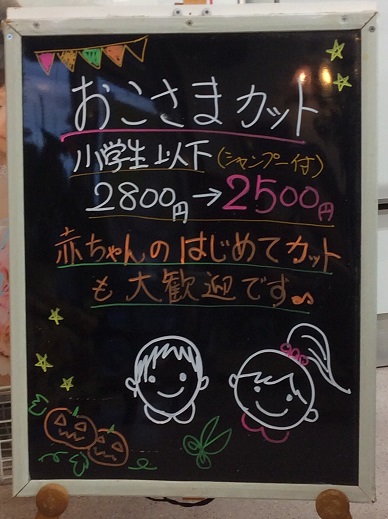 おこさまカット
小学生以下(シャンプー付)
2800円→2500円
赤ちゃんのはじめてカット
も大歓迎です♪